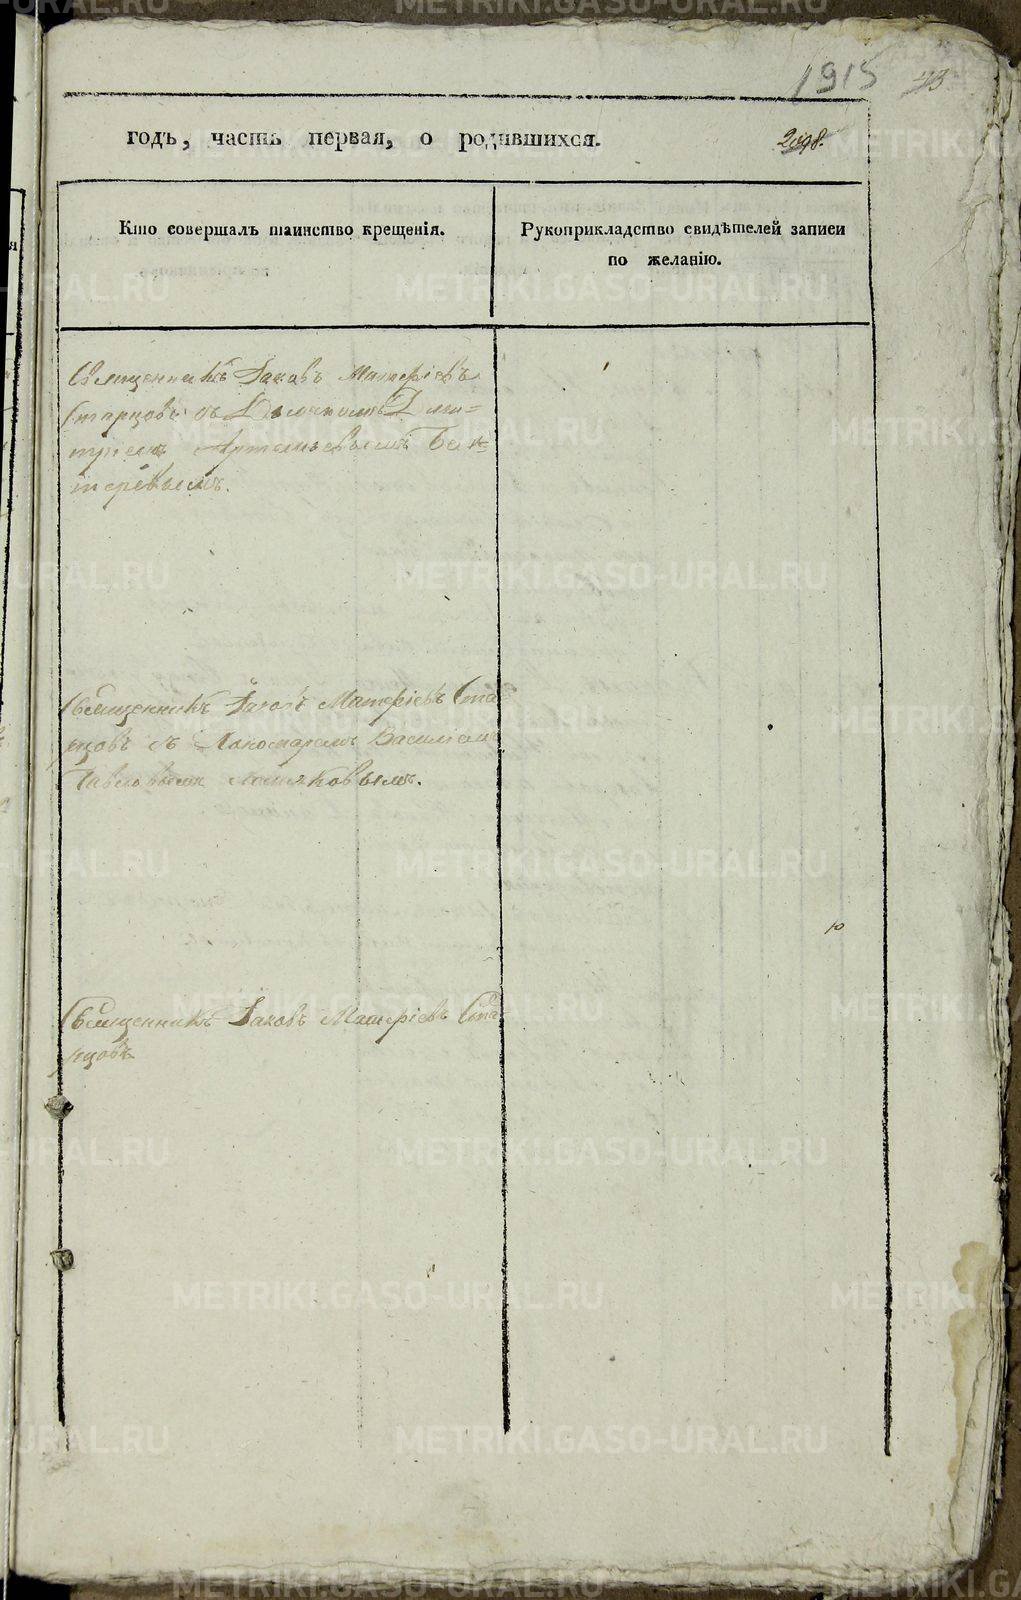 1915 73
годъ, часть первая, о родившихся. 2098.
Кто совершалъ таинство крещенія.
Рукоприкладство свидѣтелей записи
по желанію.
Священникъ Іаковъ Матѳіевъ
Старцовъ съ Дьячкомъ Дими=
тріемъ Артемьевымъ Бех=
теревымъ.
Священникъ Іаковъ Матѳіевъ Ста
рцовъ съ Пономаремъ Василіем
Павловымъ
Священникъ Іаковъ Матѳіевъ Ста
рцовъ
METRIKI.GASO-URAL.RU